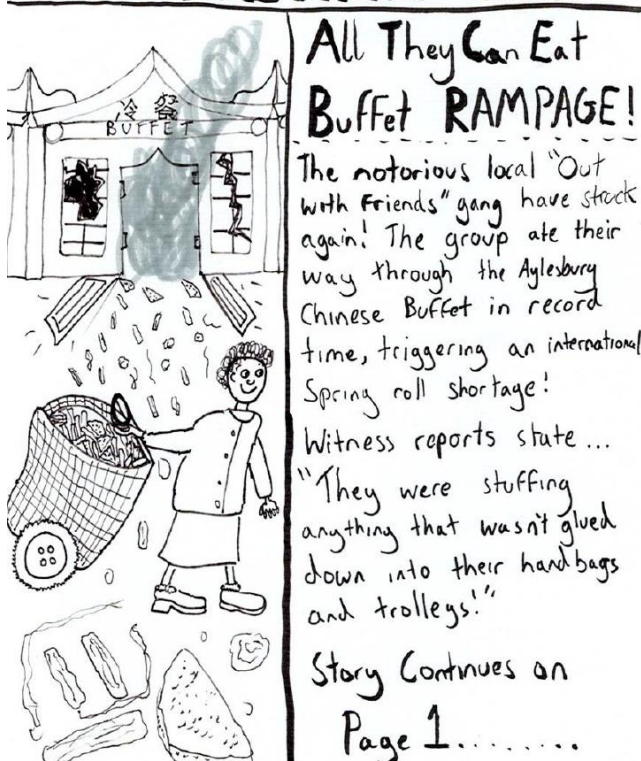 冷餐
BUFFET
All They Can Eat
Buffet RAMPAGE!
The notorious local "Out
with Friends" gang have struck
again! The group ate their
way through the Aylesbury
Chinese Buffet in record
time, triggering an international
Spring roll shortage!
Witness reports state...
"They were stuffing
anything that wasn't glued
down into their handbags
and trolleys!"
Story Continues on
Page 1.........